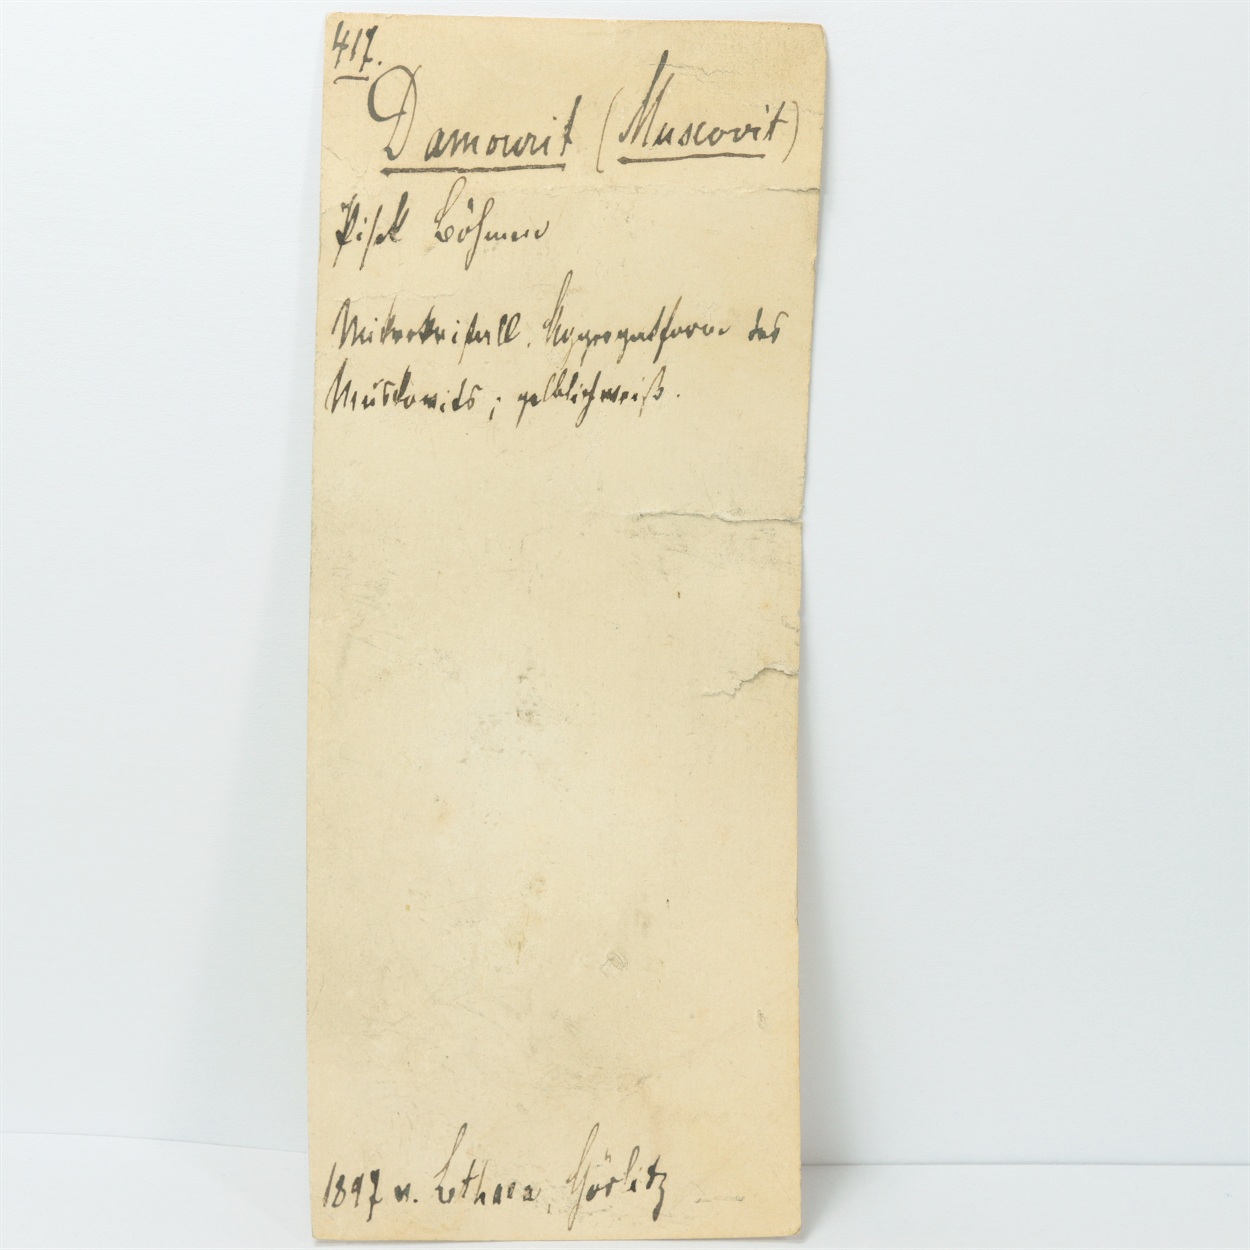 417.
Damourit (Muscovit)
Pisek Böhmen
Mikrokristall. Aggregatform des
Muskovits; gelblichweiß.
1897 v. Lethaea, Görlitz